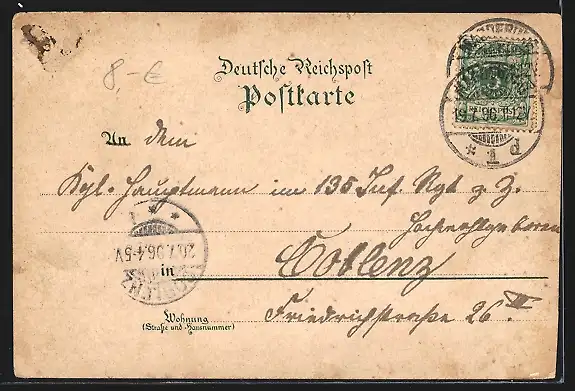 8,-€
Deutsche Reichspost
Postkarte
An dem
Kgl. Hauptmann im 135 Inf. Rgt z. Z.
Hochwohlgeboren
in Coblenz
Wohnung
(Straße und Hausnummer)
Friedrichstraße 26. III
20.7.96.4-5V.